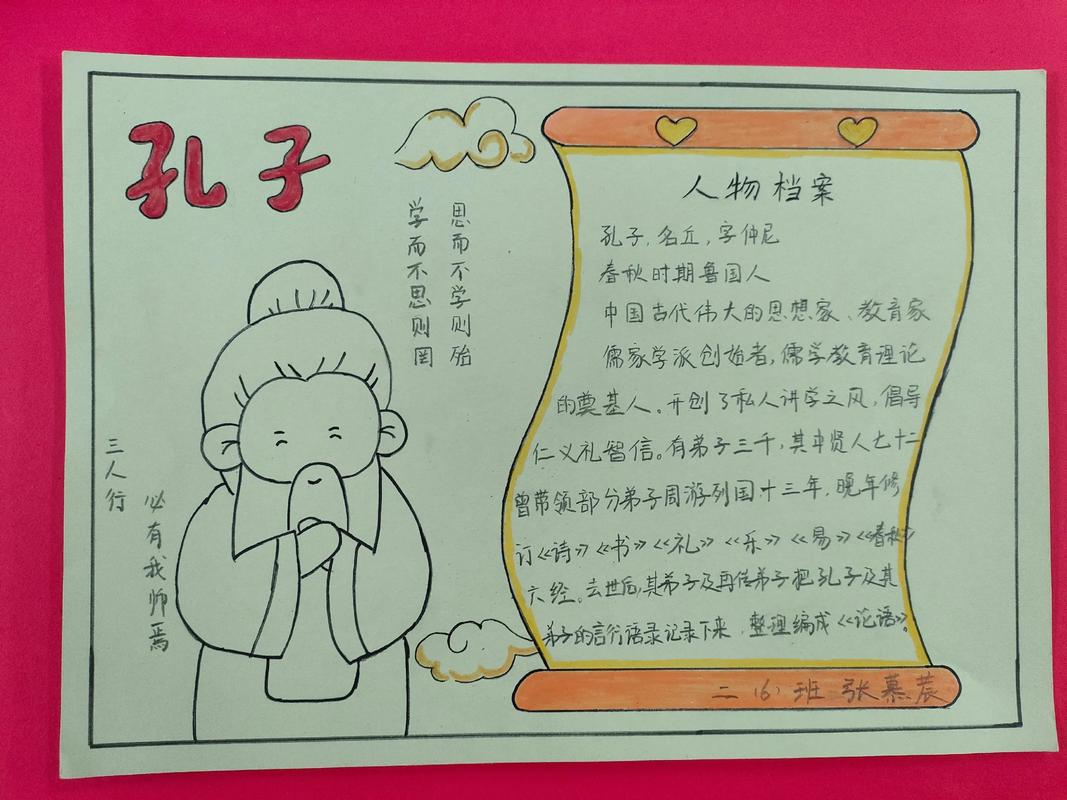 孔子
学而不思则罔
思而不学则殆
三人行
必有我师焉
人物档案
孔子，名丘，字仲尼
春秋时期鲁国人
中国古代伟大的思想家、教育家
儒家学派创始者，儒学教育理论
的奠基人。开创了私人讲学之风，倡导
仁义礼智信。有弟子三千，其中贤人七十二
曾带领部分弟子周游列国十三年，晚年修
订《诗》《书》《礼》《乐》《易》《春秋》
六经。去世后，其弟子及再传弟子把孔子及其
弟子的言行语录记录下来，整理编成《论语》。
二（6）班 张慕莀